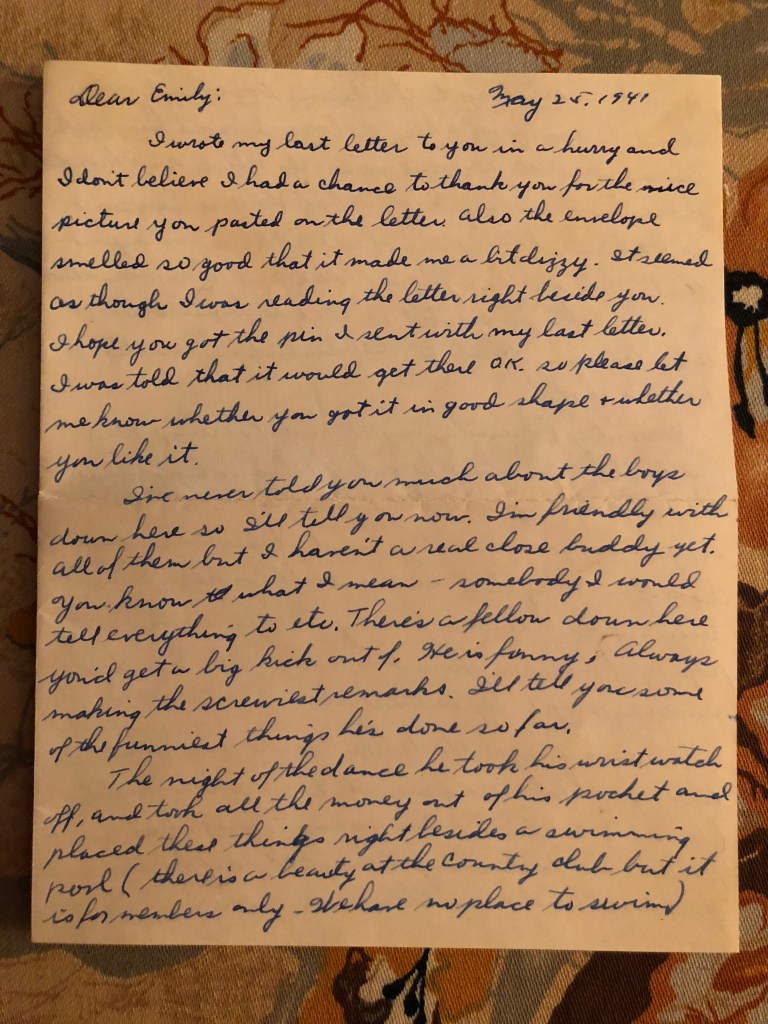 Dear Emily: May 25, 1941
I wrote my last letter to you in a hurry and
I don't believe I had a chance to thank you for the nice
picture you pasted on the letter. Also the envelope
smelled so good that it made me a bit dizzy. It seemed
as though I was reading the letter right beside you.
I hope you got the pin I sent with my last letter.
I was told that it would get there OK. so please let
me know whether you got it in good shape + whether
you like it.
I've never told you much about the boys
down here so I'll tell you now. I'm friendly with
all of them but I haven't a real close buddy yet.
You know what I mean - somebody I would
tell everything to etc. There's a fellow down here
you'd get a big kick out of. He is funny, Always
making the screwiest remarks. I'll tell you some
of the funniest things he's done so far.
The night of the dance he took his wrist watch
off, and took all the money out of his pocket and
placed these things right besides a swimming
pool (there is a beauty at the country club but it
is for members only - We have no place to swim)